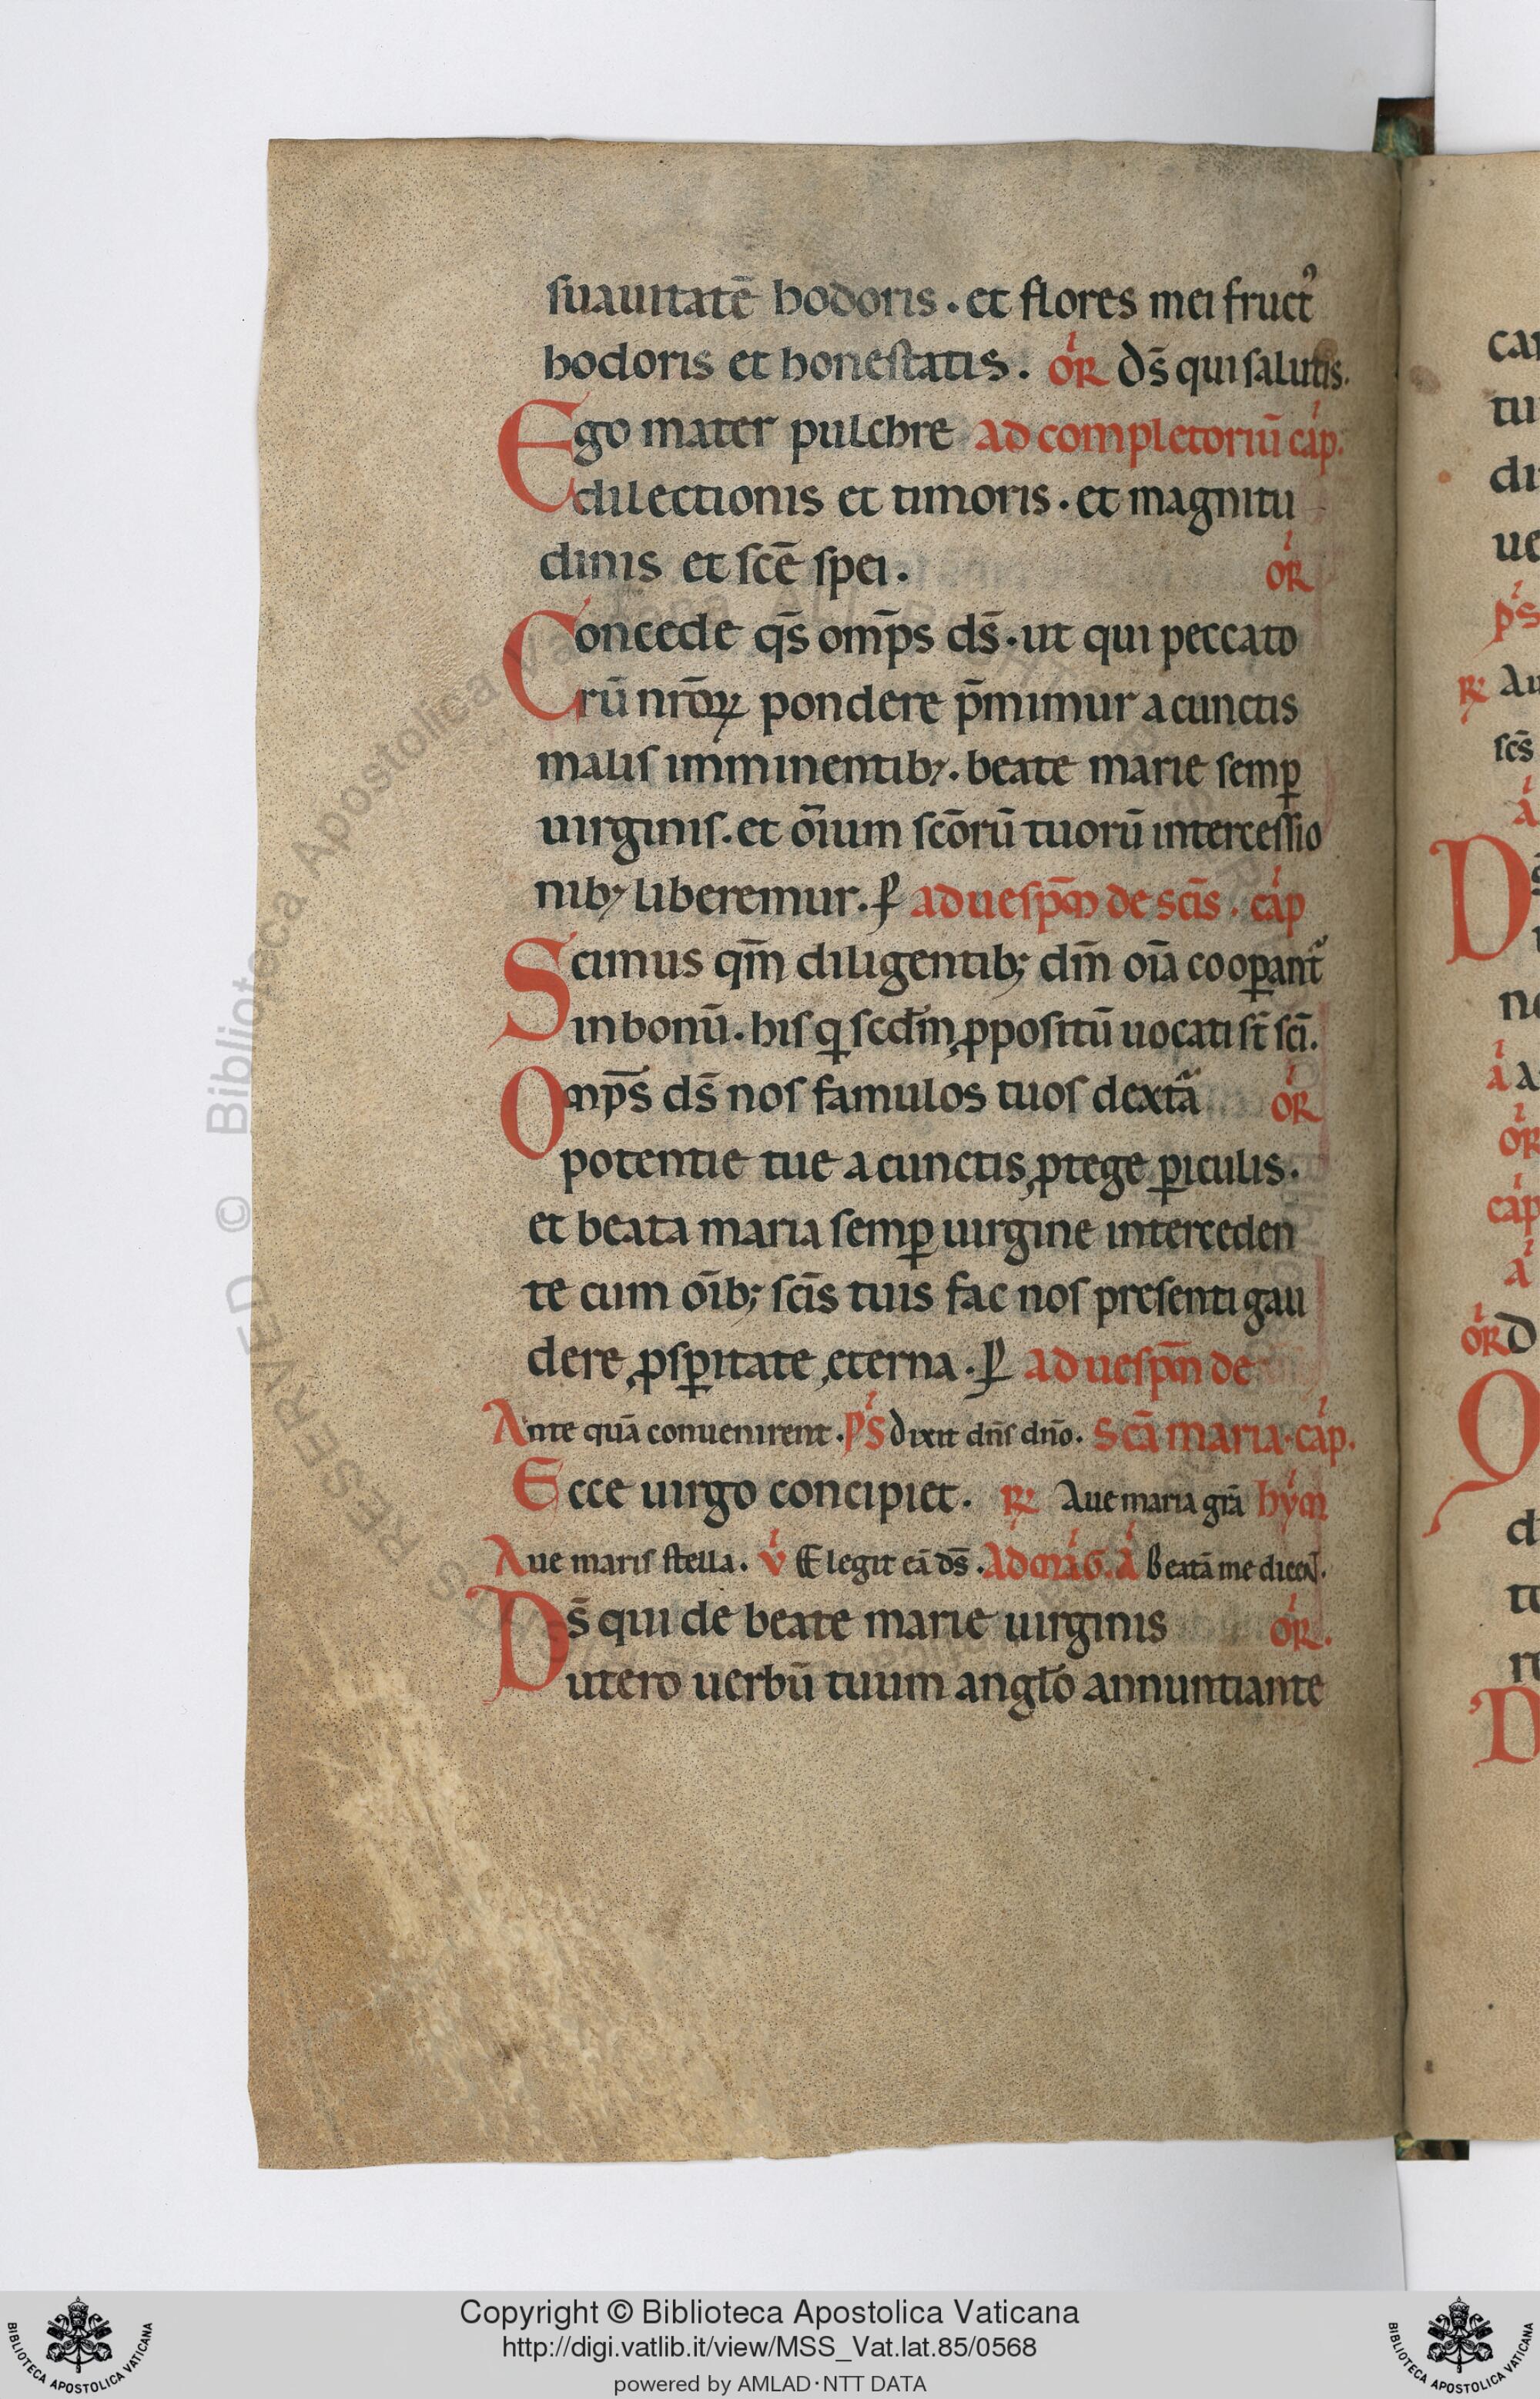 suauitatē hodoris . et flores mei fruct᾿
hodoris et honestatis . or̄ ds̄ qui salutis.
Ego mater pulchre ad completoriū cap.
dilectionis et timoris . et magnitu
dinis et scē spei . or̄
Concede qs̄ omp̄s ds̄ . ut qui peccato
rū nr̄oꝝ pondere p̄mimur a cunctis
malis imminentib; . beate marie semꝑ
uirginis . et oīum scōrū tuorū intercessio
nib; liberemur . ꝑ ad uesp̄m de scīs . cap
Scimus qm̄ diligentib; dm̄ oīa cooꝑant᾿
in bonū . his q̇ scdm̄ ꝓpositū uocati st̄ scī .
Omp̄s ds̄ nos famulos tuos dextᵃ̄ or̄
potentie tue a cunctis ꝓtege ꝑiculis .
et beata maria semꝑ uirgine interceden
te cum oīb; scīs tuis fac nos presenti gau
dere ꝓsꝑitate , eterna . ꝑ ad uesp̄m de
Ante quā conuenirent . ps̄ dixit dn̄s dn̄o . scā maria . cap .
Ecce uirgo concipiet . ℟ Aue maria grā hym
Aue maris stella . v̄ Elegit eā ds̄ . Ad maḡ . a Beatā me dicent .
Ds̄ qui de beate marie uirginis or̄ .
utero uerbū tuum anglo annuntiante
car
tu
di
ue
ps
℟ Au
scs̄
a
D
ne
a a
or̄
cap
a
or̄ d
O
d
te
re
D
© Biblioteca Apostolica Vaticana ALL RIGHTS RESERVED
Copyright © Biblioteca Apostolica Vaticana
http://digi.vatlib.it/view/MSS_Vat.lat.85/0568
powered by AMLAD·NTT DATA
BIBLIOTECA APOSTOLICA VATICANA
BIBLIOTECA APOSTOLICA VATICANA